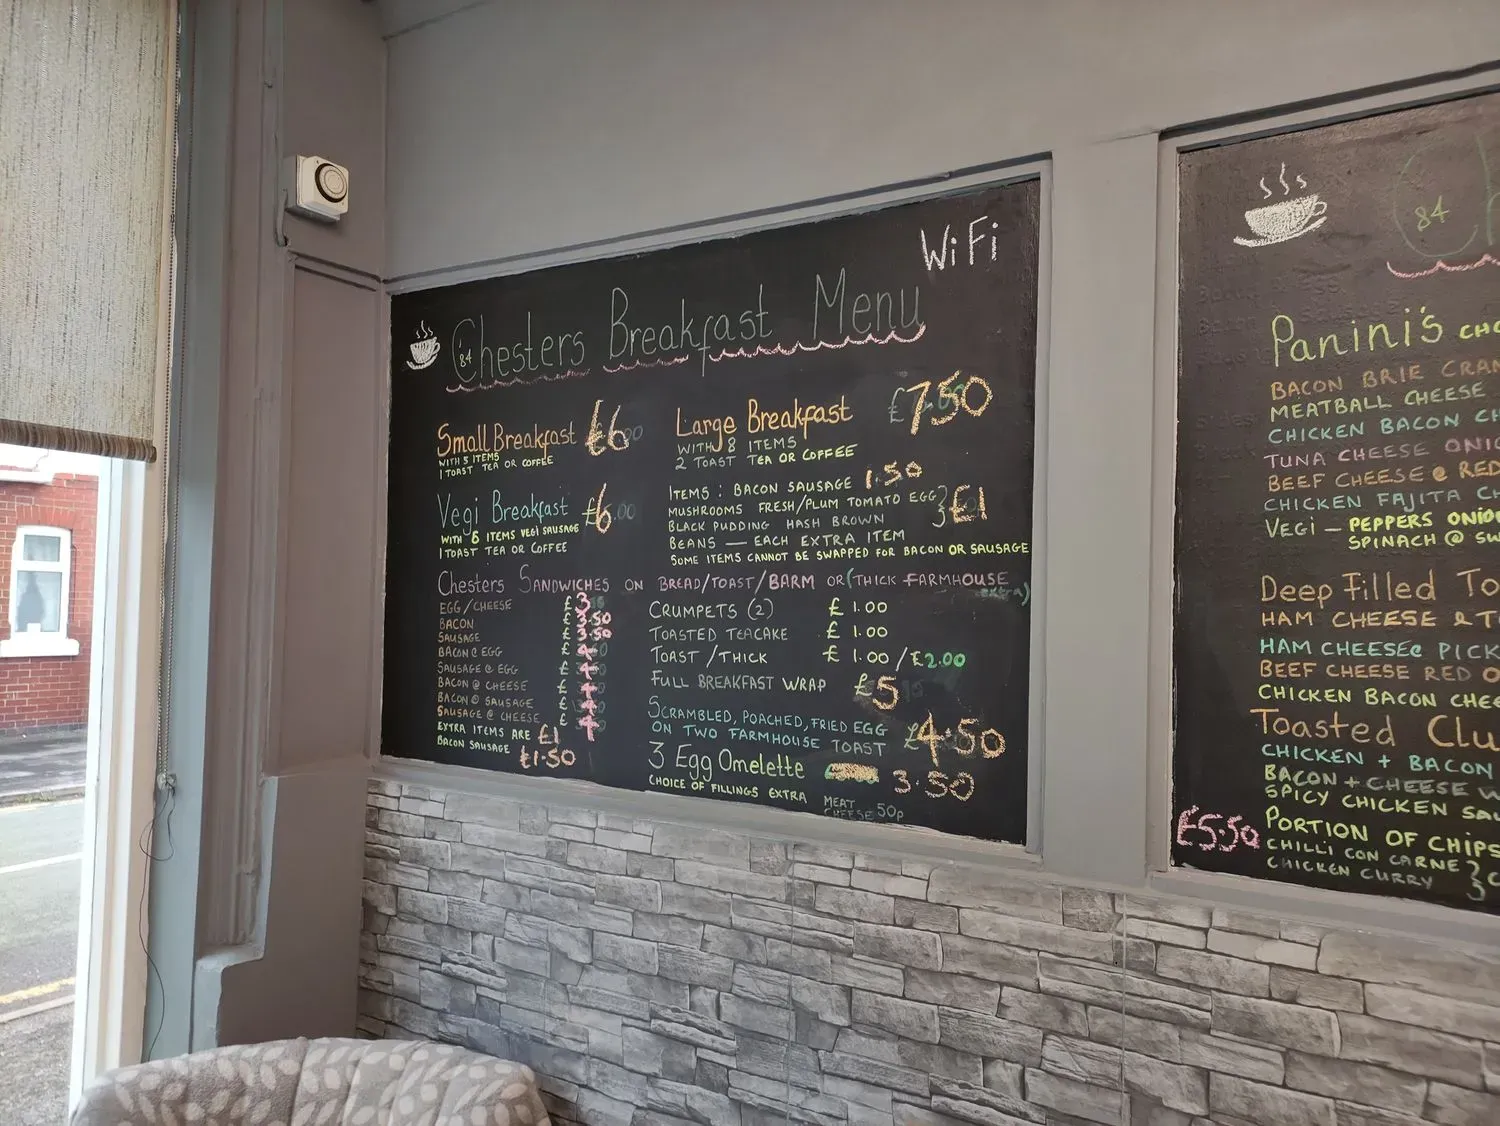 WiFi
84 Chesters Breakfast Menu
Small Breakfast £6
WITH 5 ITEMS
1 TOAST TEA OR COFFEE
Vegi Breakfast £6
WITH 6 ITEMS VEGI SAUSAGE
1 TOAST TEA OR COFFEE
Large Breakfast £7.50
WITH 8 ITEMS
2 TOAST TEA OR COFFEE
ITEMS : BACON SAUSAGE 1.50
MUSHROOMS FRESH/PLUM TOMATO EGG } £1
BLACK PUDDING HASH BROWN
BEANS — EACH EXTRA ITEM
SOME ITEMS CANNOT BE SWAPPED FOR BACON OR SAUSAGE
Chesters SANDWICHES ON BREAD/TOAST/BARM OR (THICK FARMHOUSE
extra)
EGG/CHEESE £3
BACON £3.50
SAUSAGE £3.50
BACON @ EGG £4
SAUSAGE @ EGG £4
BACON @ CHEESE £4
BACON @ SAUSAGE £4
SAUSAGE @ CHEESE £4
EXTRA ITEMS ARE £1
BACON SAUSAGE £1.50
CRUMPETS (2) £1.00
TOASTED TEACAKE £1.00
TOAST/THICK £1.00/£2.00
FULL BREAKFAST WRAP £5
SCRAMBLED, POACHED, FRIED EGG
ON TWO FARMHOUSE TOAST £4.50
3 Egg Omelette 3.50
CHOICE OF FILLINGS EXTRA
MEAT
CHEESE 50p
84 Ch
Panini's
BACON BRIE CRAN
MEATBALL CHEESE
CHICKEN BACON CH
TUNA CHEESE ONIO
BEEF CHEESE @ RED
CHICKEN FAJITA CH
VEGI — PEPPERS ONIO
SPINACH @ SW
Deep Filled To
HAM CHEESE @ T
HAM CHEESE @ PICK
BEEF CHEESE RED O
CHICKEN BACON CHEE
Toasted Clu
CHICKEN + BACON
BACON + CHEESE W
SPICY CHICKEN SAL
£5.50
PORTION OF CHIPS
CHILLI CON CARNE }
CHICKEN CURRY